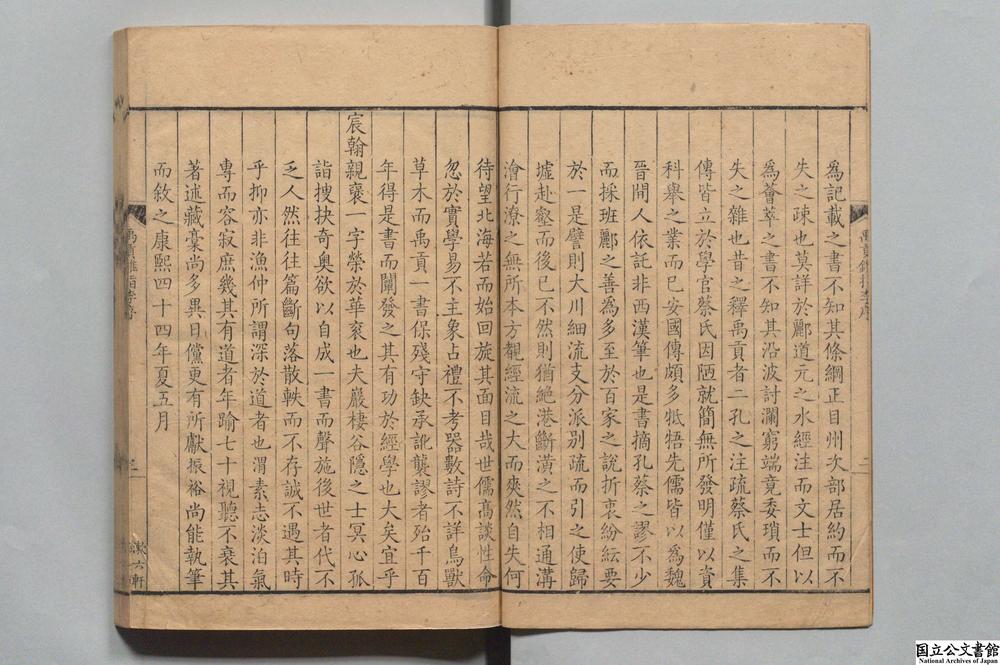 為記載之書不知其條綱正目州次部居約而不
失之疎也莫詳於酈道元之水經注而文士但以
為薈萃之書不知其沿波討瀾窮端竟委瑣而不
失之雜也昔之釋禹貢者二孔之注疏蔡氏之集
傳皆立於學官蔡氏因陋就簡無所發明僅以資
科舉之業而已安國傳頗多牴牾先儒皆以為魏
晉閒人依託非西漢筆也是書摘孔蔡之謬不少
而採班酈之善為多至於百家之說折衷紛紜要
於一是譬則大川細流支分派別疏而引之使歸
墟赴壑而後已不然則猶絶港斷潢之不相通溝
澮行潦之無所本方覩經流之大而爽然自失何
待望北海若而始回旋其面目哉世儒高談性命
忽於實學易不主象占禮不考器數詩不詳鳥獸
草木而禹貢一書保殘守缺承訛襲謬者殆千百
年得是書而闡發之其有功於經學也大矣宜乎
宸翰親褒一字榮於華衮也夫巖棲谷隱之士冥心孤
詣搜抉奇奧欲以自成一書而聲施後世者代不
乏人然往往篇斷句落散軼而不存誠不遇其時
乎抑亦非漁仲所謂深於道者也渭素志淡泊氣
專而容寂庶幾其有道者年踰七十視聽不衰其
著述藏稾尚多異日儻更有所獻振裕尚能執筆
而敘之康熙四十四年夏五月
禹貢錐指李序
三
漱六軒
国立公文書館
National Archives of Japan